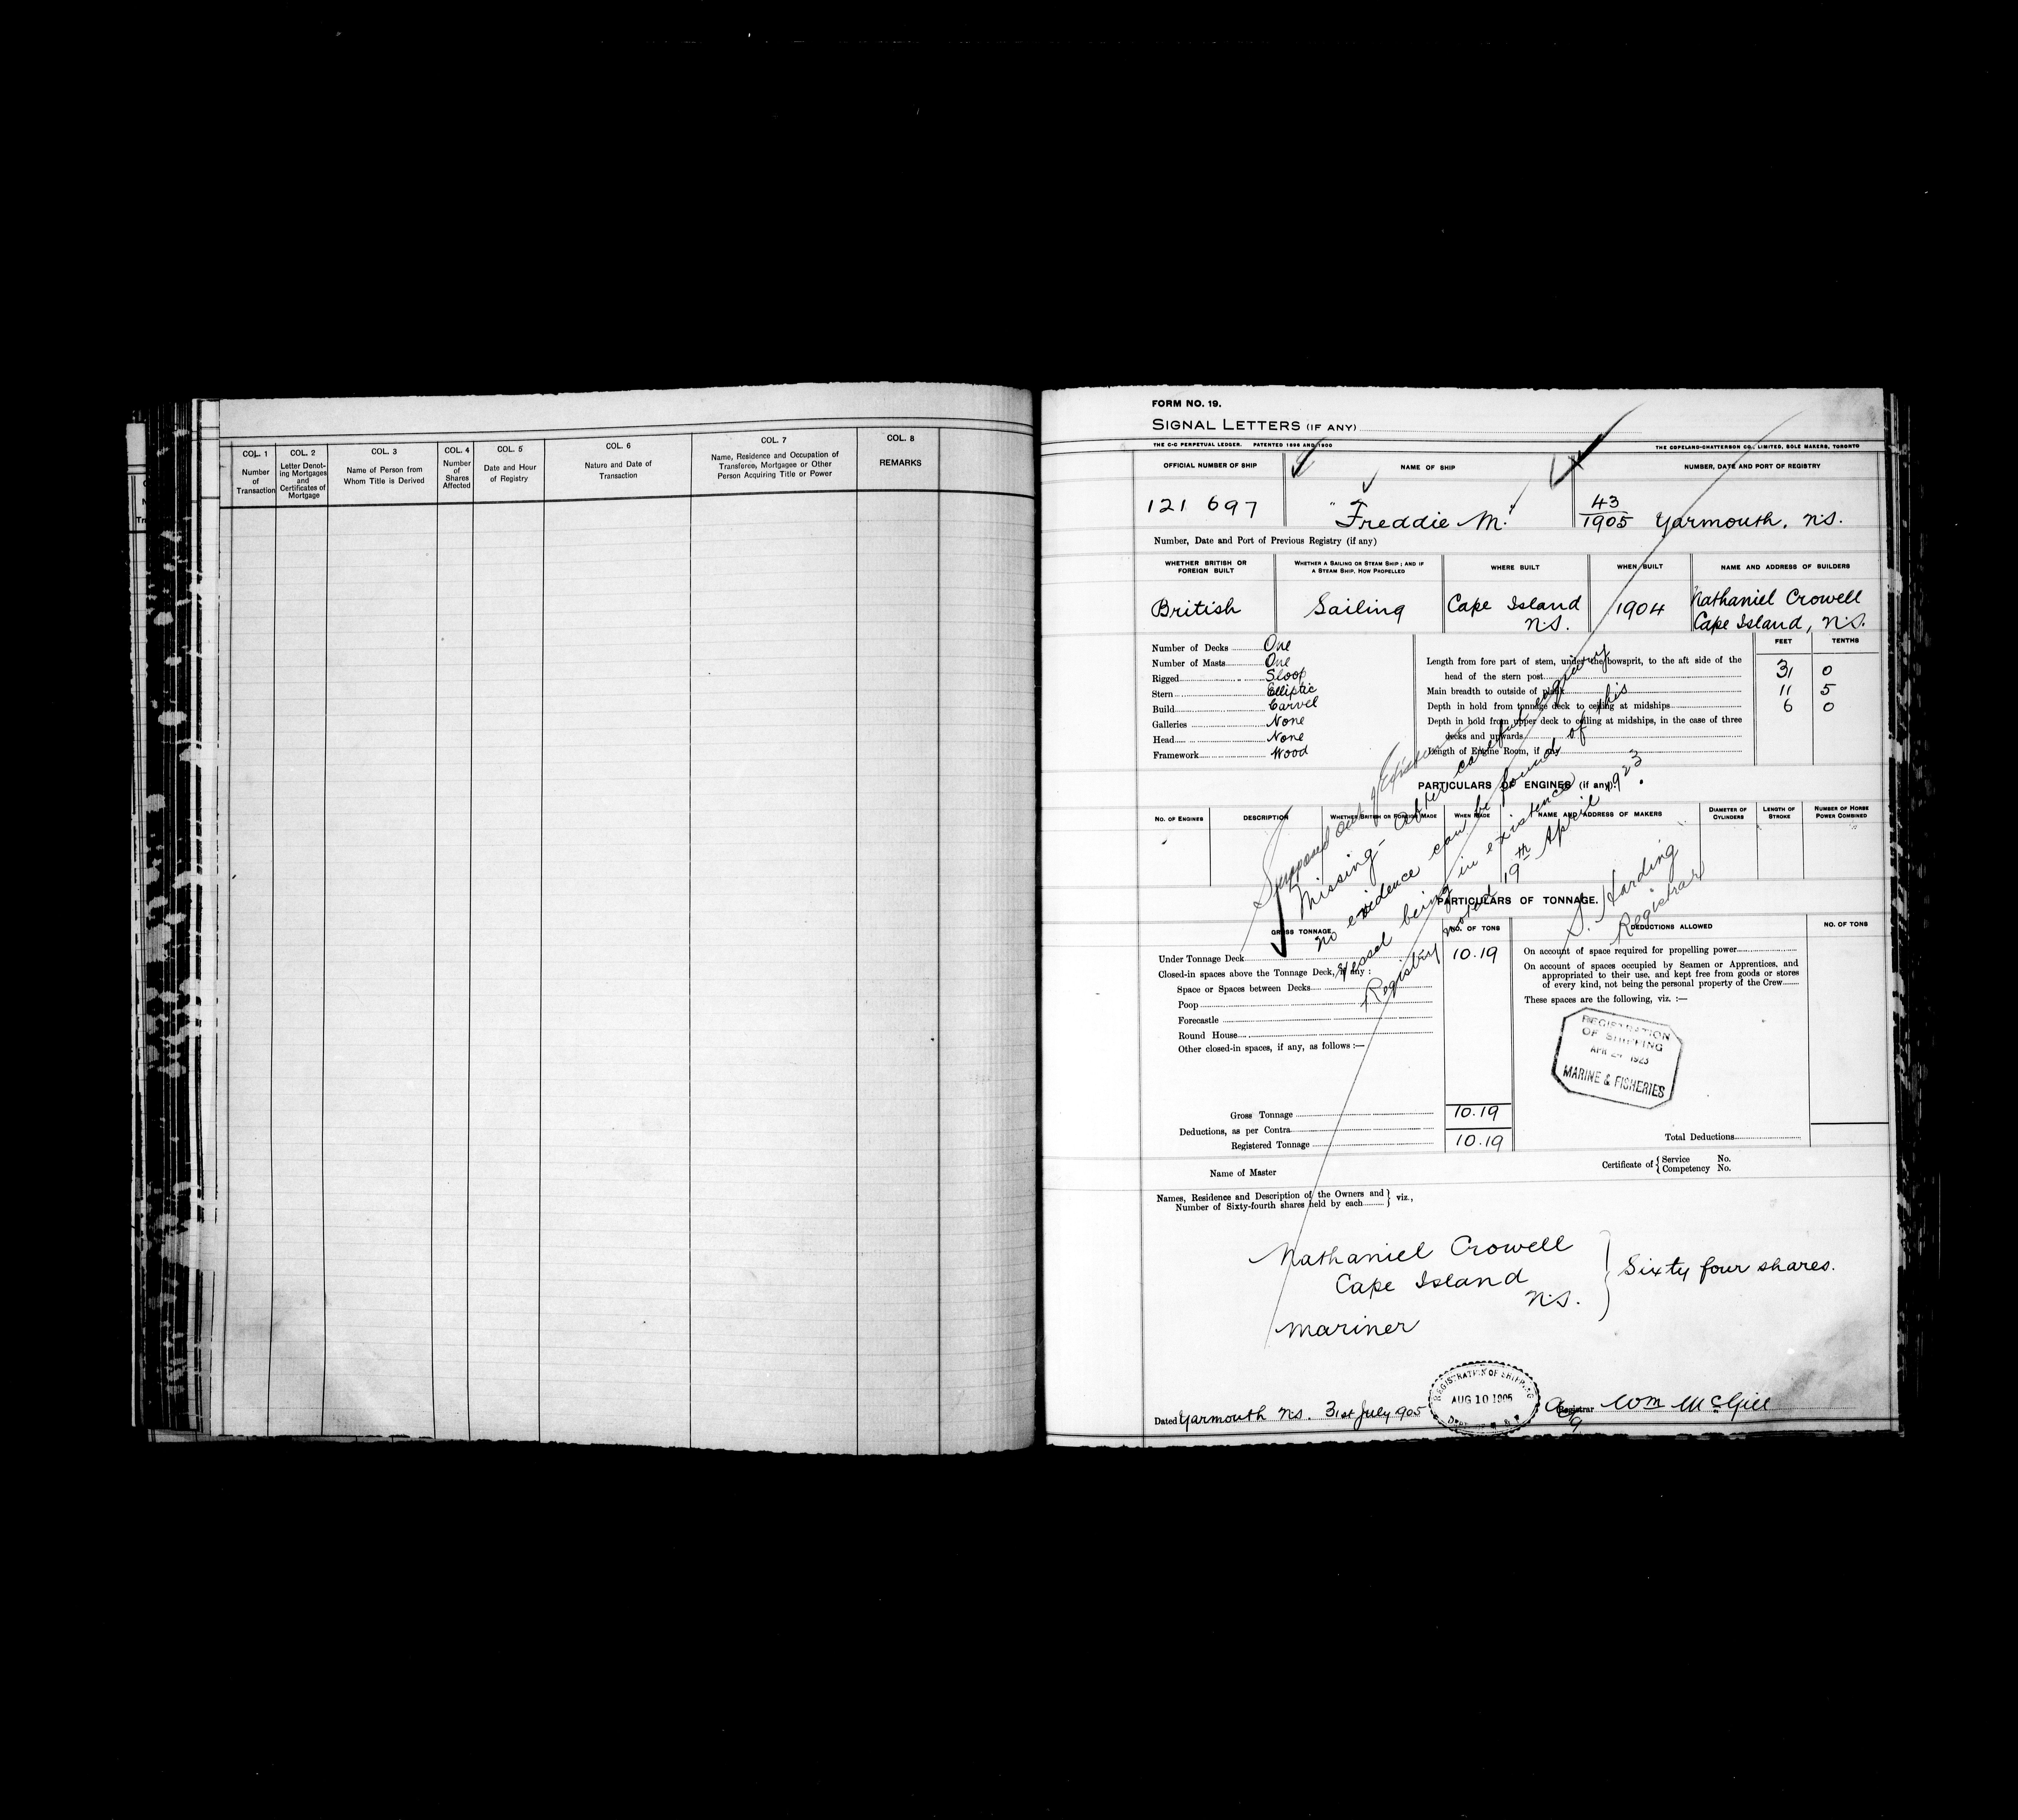 COL. 1
Number
of
Transaction
COL. 2
Letter Denot-
ing Mortgages
and
Certificates of
Mortgage
COL. 3
Name of Person from
Whom Title is Derived
COL. 4
Number
of
Shares
Affected
COL. 5
Date and Hour
of Registry
COL. 6
Nature and Date of
Transaction
COL. 7
Name, Residence and Occupation of
Transferee, Mortgagee or Other
Person Acquiring Title or Power
COL. 8
REMARKS
FORM NO. 19.
SIGNAL LETTERS (IF ANY)
THE C-C PERPETUAL LEDGER. PATENTED 1896 AND 1900
THE COPELAND-CHATTERSON CO., LIMITED, SOLE MAKERS, TORONTO
OFFICIAL NUMBER OF SHIP
NAME OF SHIP
NUMBER, DATE AND PORT OF REGISTRY
121 697
"Freddie M."
43
1905 Yarmouth, N.S.
Number, Date and Port of Previous Registry (if any)
WHETHER BRITISH OR
FOREIGN BUILT
WHETHER A SAILING OR STEAM SHIP; AND IF
A STEAM SHIP, HOW PROPELLED
WHERE BUILT
WHEN BUILT
NAME AND ADDRESS OF BUILDERS
British
Sailing
Cape Island
N.S.
1904
Nathaniel Crowell
Cape Island, N.S.
Number of Decks One
Number of Masts One
Rigged Sloop
Stern Elliptic
Build Carvel
Galleries None
Head None
Framework Wood
FEET TENTHS
Length from fore part of stem, under the bowsprit, to the aft side of the
head of the stern post 31 0
Main breadth to outside of plank 11 5
Depth in hold from tonnage deck to ceiling at midships 6 0
Depth in hold from upper deck to ceiling at midships, in the case of three
decks and upwards
Length of Engine Room, if any
Supposed out of Existence
Missing - after careful enquiry
no evidence can be found of this
vessel being in existence
Registry noted 19th April 1923.
S. Harding
Registrar
PARTICULARS OF ENGINES (if any).
NO. OF ENGINES
DESCRIPTION
WHETHER BRITISH OR FOREIGN MADE
WHEN MADE
NAME AND ADDRESS OF MAKERS
DIAMETER OF
CYLINDERS
LENGTH OF
STROKE
NUMBER OF HORSE
POWER COMBINED
PARTICULARS OF TONNAGE.
GROSS TONNAGE
NO. OF TONS
DEDUCTIONS ALLOWED
NO. OF TONS
Under Tonnage Deck 10.19
Closed-in spaces above the Tonnage Deck, if any :
Space or Spaces between Decks
Poop
Forecastle
Round House
Other closed-in spaces, if any, as follows :—
Gross Tonnage 10.19
Deductions, as per Contra
Registered Tonnage 10.19
On account of space required for propelling power
On account of spaces occupied by Seamen or Apprentices, and
appropriated to their use, and kept free from goods or stores
of every kind, not being the personal property of the Crew
These spaces are the following, viz. :—
REGISTRATION
OF SHIPPING
APR 24 1923
MARINE & FISHERIES
Total Deductions
Name of Master
Certificate of { Service No.
Competency No.
Names, Residence and Description of the Owners and
Number of Sixty-fourth shares held by each } viz.,
Nathaniel Crowell
Cape Island
N.S.
Mariner
Sixty four shares.
REGISTRATION OF SHIPPING
AUG 10 1905
Dated Yarmouth N.S. 31st July 1905
Registrar Wm McGill